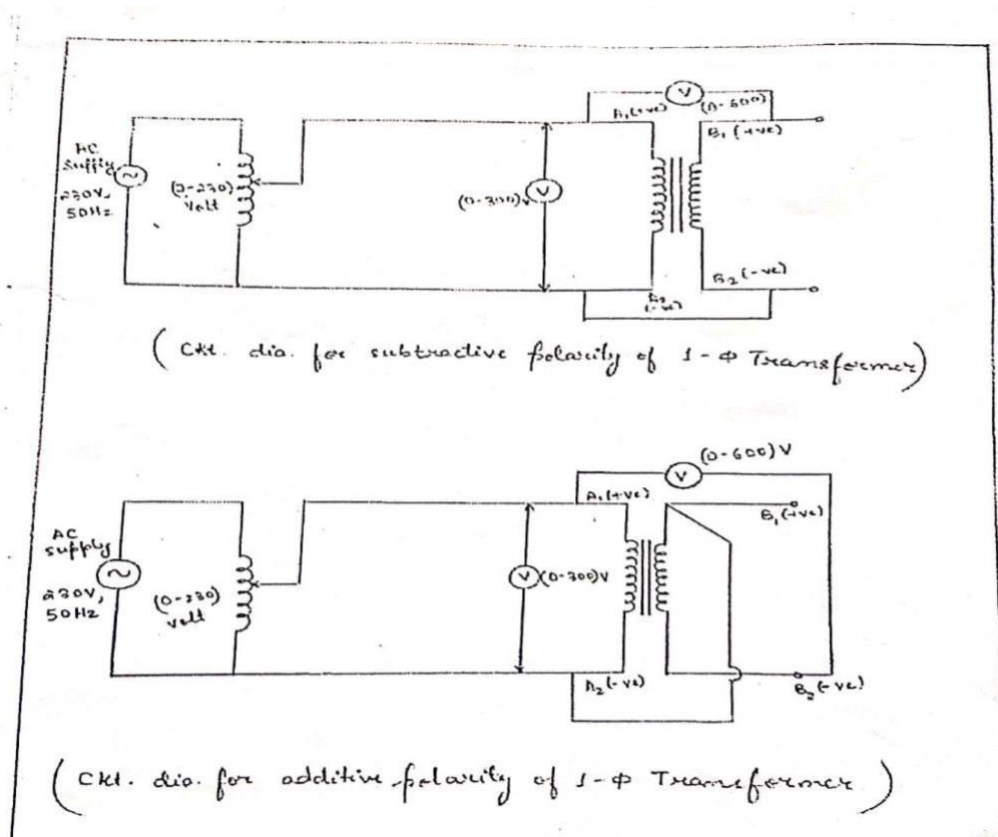 AC
supply
230V,
50Hz
(0-230)
Volt
(0-300)V
V
V
(0-600)
A₁(+ve)
B₁ (+ve)
A₂
(-ve)
B₂ (-ve)
(Ckt. dia. for subtractive polarity of 1-Φ Transformer)
AC
supply
230V,
50Hz
(0-230)
Volt
V
(0-300)V
V
(0-600)V
A₁(+ve)
B₁(+ve)
A₂(-ve)
B₂(-ve)
(Ckt. dia. for additive polarity of 1-Φ Transformer)